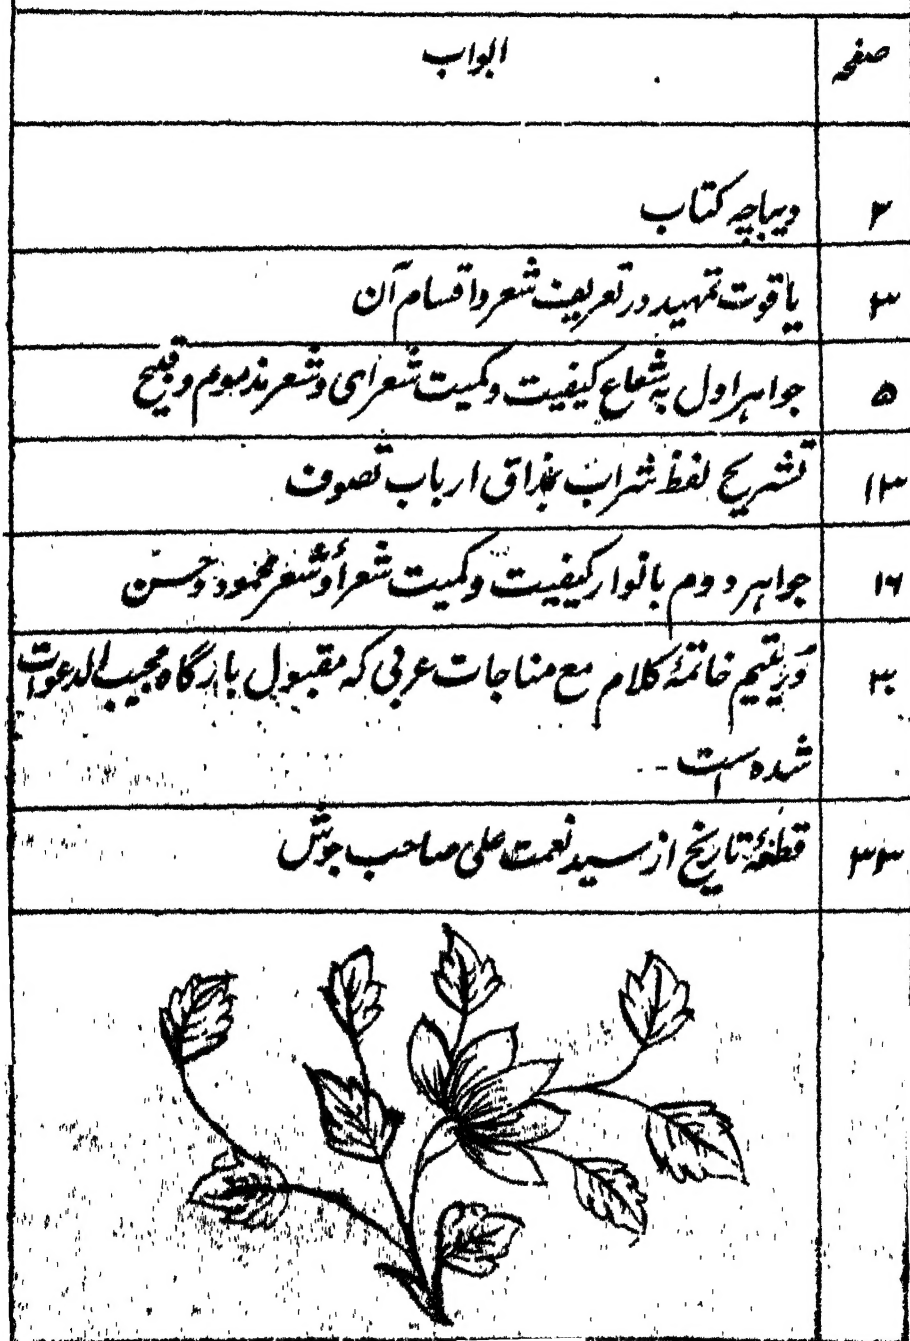 صفحہ ابواب
۲ دیباچہ کتاب
۳ یاقوت تمہید در تعریف شعر و اقسام آن
۵ جواہر اول بہ شعاع کیفیت و کمیت شعرای و شعر مذموم و قبیح
۱۳ تشریح لفظ شراب بمذاق ارباب تصوف
۱۶ جواہر دوم بانوار کیفیت و کمیت شعراؤ شعر محمود و حسن
۳۰ دُرِّیتیم خاتمۂ کلام مع مناجات عربی کہ مقبول بارگاہ مجیب الدعوات
شدہ است -
۳۳ قطعۂ تاریخ از سید نعمت علی صاحب جوش